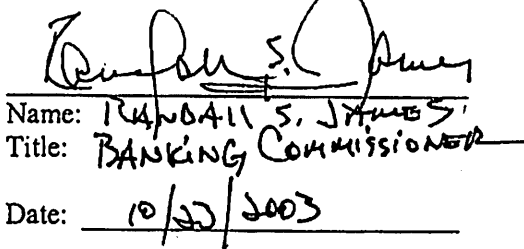 Randall S. James
Name: RANDALL S. JAMES
Title: BANKING COMMISSIONER
Date: 10/23/2003